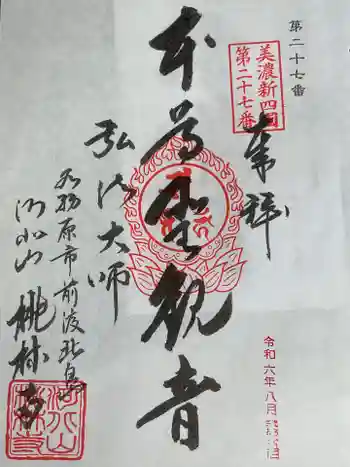 第二十七番
美濃新四国
第二十七番
奉拝
本尊聖観音
弘法大師
各務原市前渡北町
河北山
桃林寺
令和六年八月